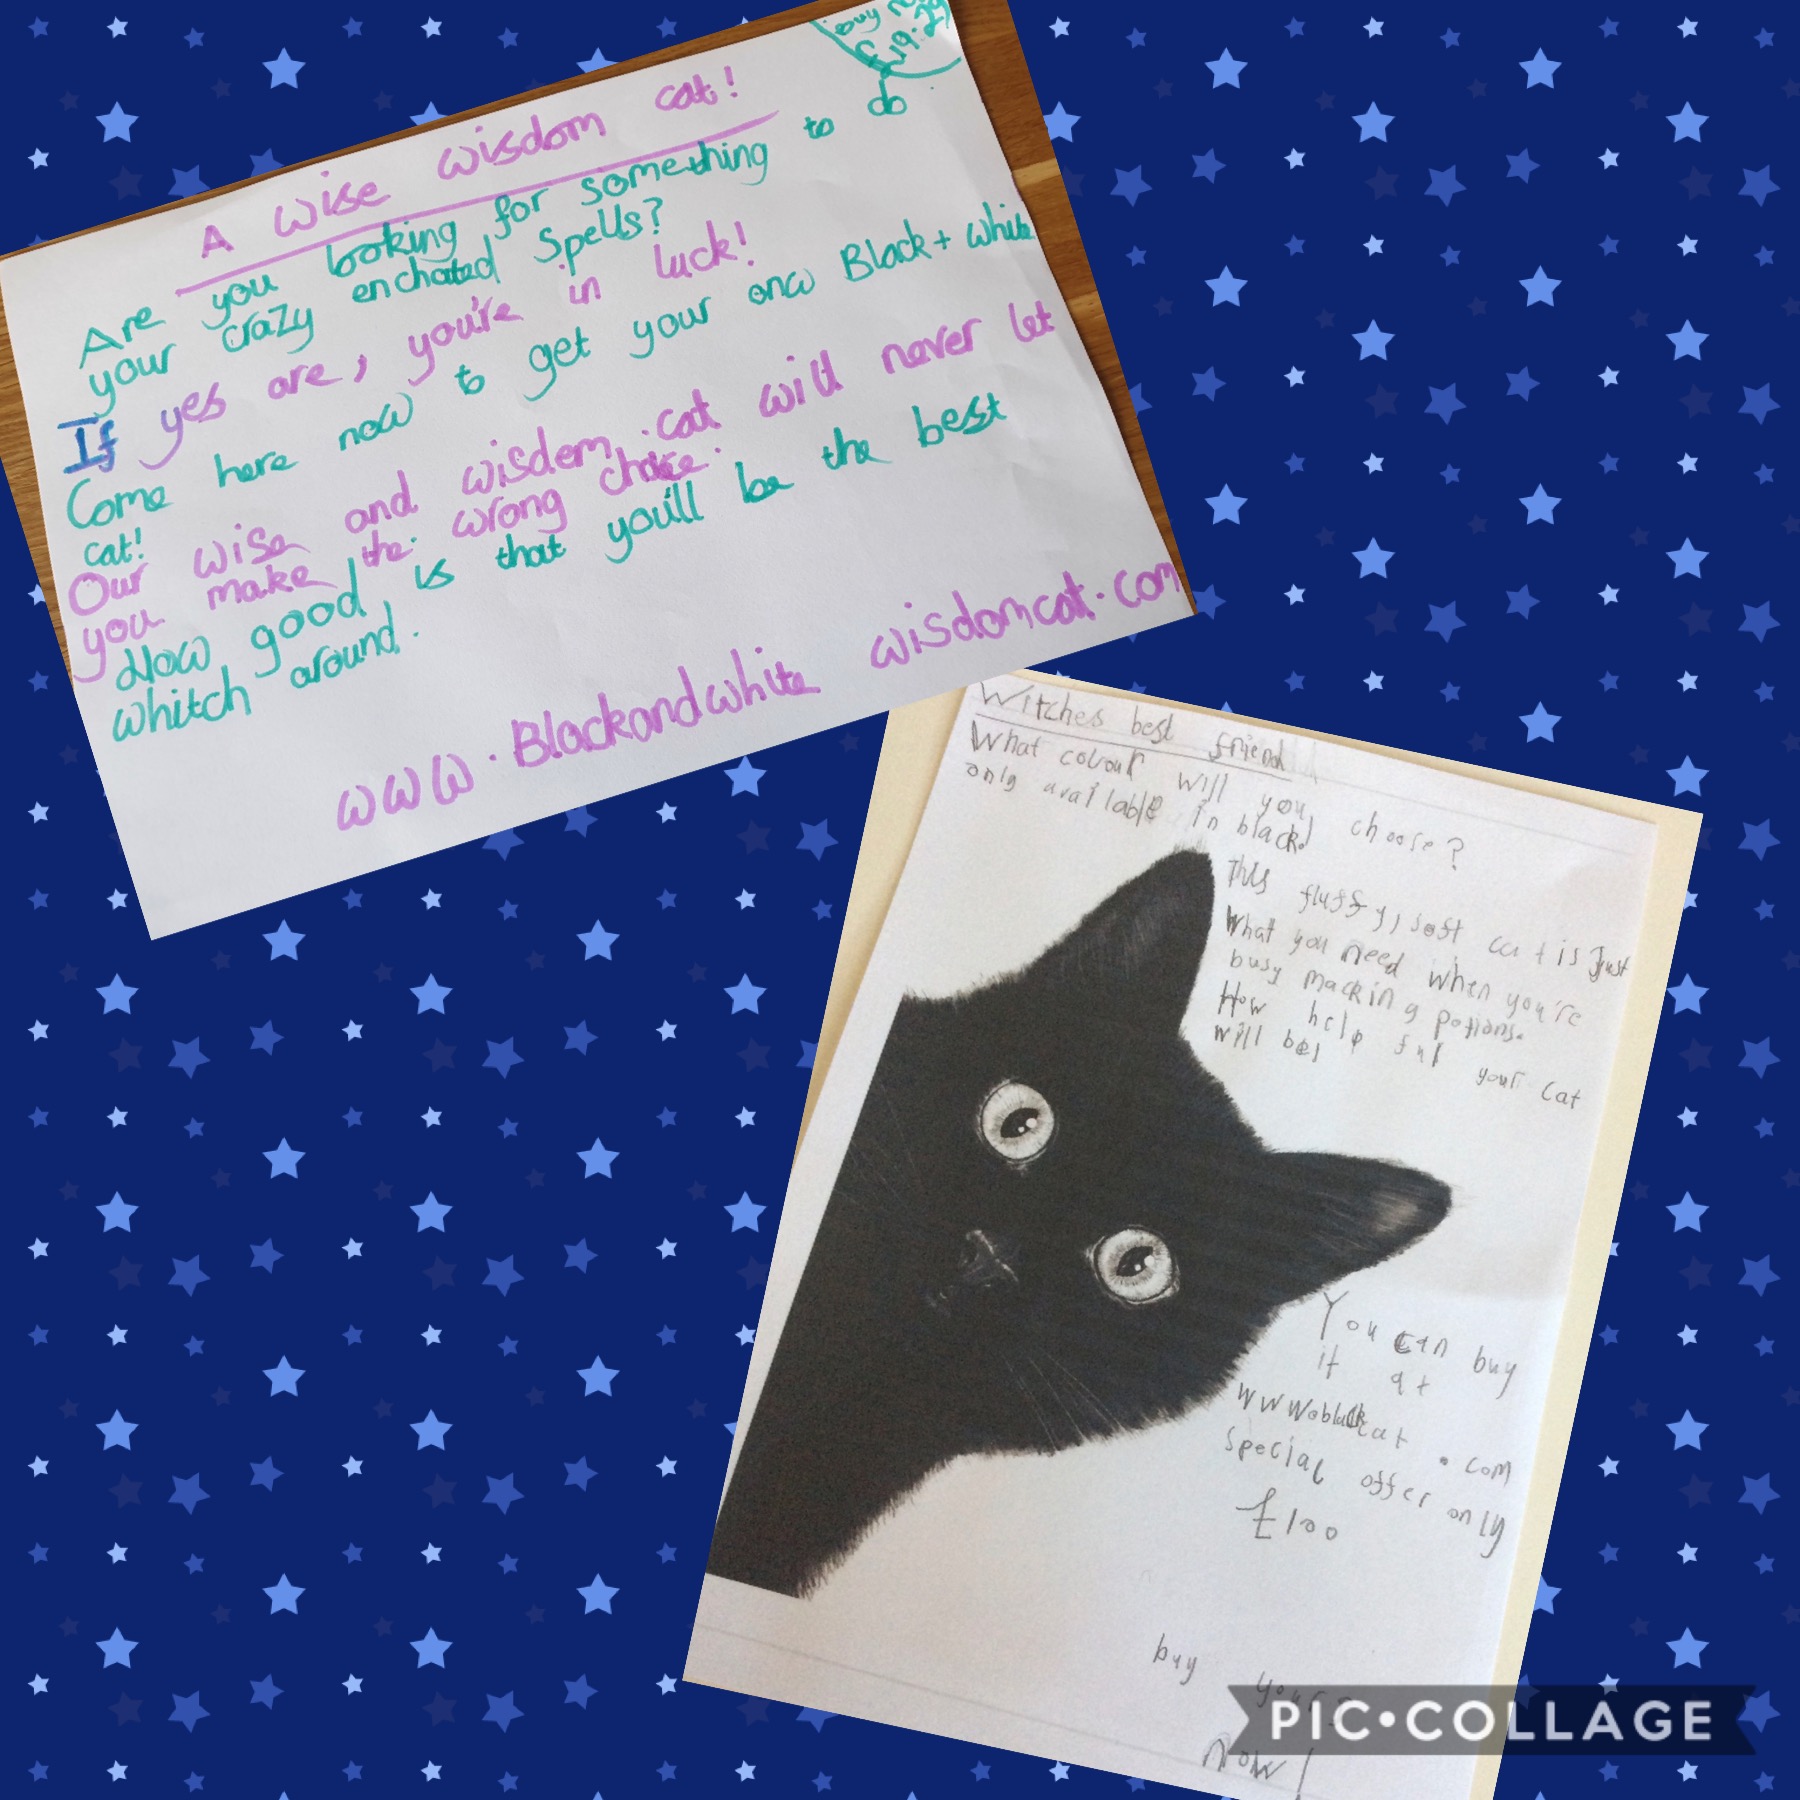 buy
£19.29
A wise wisdom cat!
Are you looking for something to do
your crazy enchated spells?
If yes are, you're in luck!
Come here now to get your onw Black + white
cat!
Our wise and wisdem cat will never let
you make the wrong choise.
How good is that you'll be the best
whitch around.
www.Blackandwhite wisdomcat.com
Witches best friend
What colour will you choose?
only available in black.
This fluffy, soft cat is just
What you need when you're
busy macking potions.
How help ful your cat
will be!
You can buy
it at
www.blackcat.com
special offer only
£100
buy yours
now!
PIC•COLLAGE